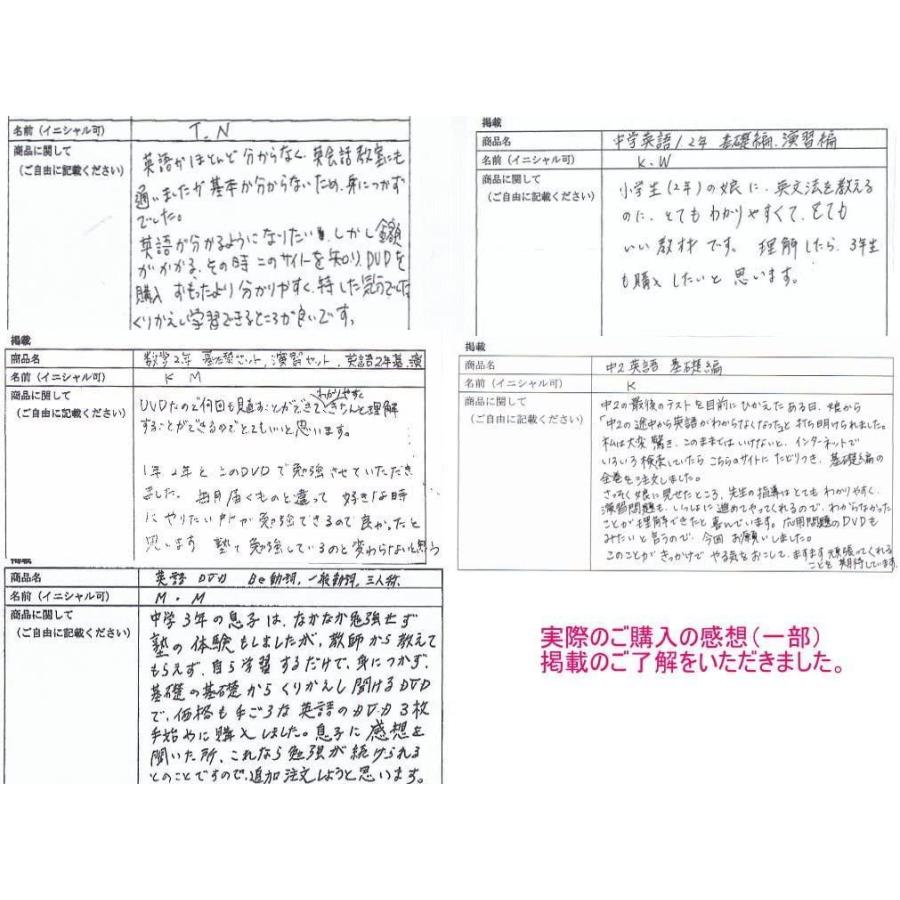 名前（イニシャル可）
T.N
商品に関して
（ご自由に記載ください）
英語がほとんど分からなく、英会話教室にも
通いましたが基本が分からないため、身につかず
でした。
英語が分かるようになりたい、しかし金額
がかかる、その時このサイトを知り、DVDを
購入 おもったより分かりやすく、得した気分でした
くりかえし学習できるところが良いです。
掲載
商品名
中学英語1.2年 基礎編、演習編
名前（イニシャル可）
K.W
商品に関して
（ご自由に記載ください）
小学生（2年）の娘に、英文法を教える
のに、とてもわかりやすくて、とても
いい教材です。理解したら、3年生
も購入したいと思います。
掲載
商品名
数学2年 基礎セット、演習セット、英語2年基、演
名前（イニシャル可）
K M
商品に関して
（ご自由に記載ください）
わかりやすく
DVDなので何回も見直すことができてきちんと理解
することができるのでとてもいいと思います。
1年2年とこのDVDで勉強させていただき
ました。毎月届くものと違って 好きな時
にやりたい所が勉強できるので良かったと
思います 塾で勉強しているのと変わらないと思う
商品名
中2英語 基礎編
名前（イニシャル可）
K
商品に関して
（ご自由に記載ください）
中2の最後のテストを目前にひかえたある日、娘から
「中2の途中から英語がわからなくなった」と打ち明けられました。
私は大変驚き、このままではいけないと、インターネットで
いろいろ検索していたらこちらのサイトにたどりつき、基礎編の
全巻を注文しました。
さっそく娘に見せたところ、先生の指導はとてもわかりやすく、
演習問題も、いっしょに進めてやってくれるので、わからなかった
ことが理解できたと喜んでいます。応用問題のDVDも
みたいと言うので、今回お願いしました。
このことがきっかけでやる気をおこして、ますます頑張ってくれる
ことを期待しています。
掲載
商品名
英語 DVD Be動詞、一般動詞、三人称、
名前（イニシャル可）
M・M
商品に関して
（ご自由に記載ください）
中学3年の息子は、なかなか勉強せず
塾の体験もしましたが、教師から教えて
もらえず、自ら学習するだけで、身につかず、
基礎の基礎からくりかえし聞けるDVD
で、価格も手ごろな英語のDVD3枚
手始めに購入しました。息子に感想を
聞いた所、これなら勉強が続けられる
とのことですので、追加注文しようと思います。
実際のご購入の感想（一部）
掲載のご了解をいただきました。